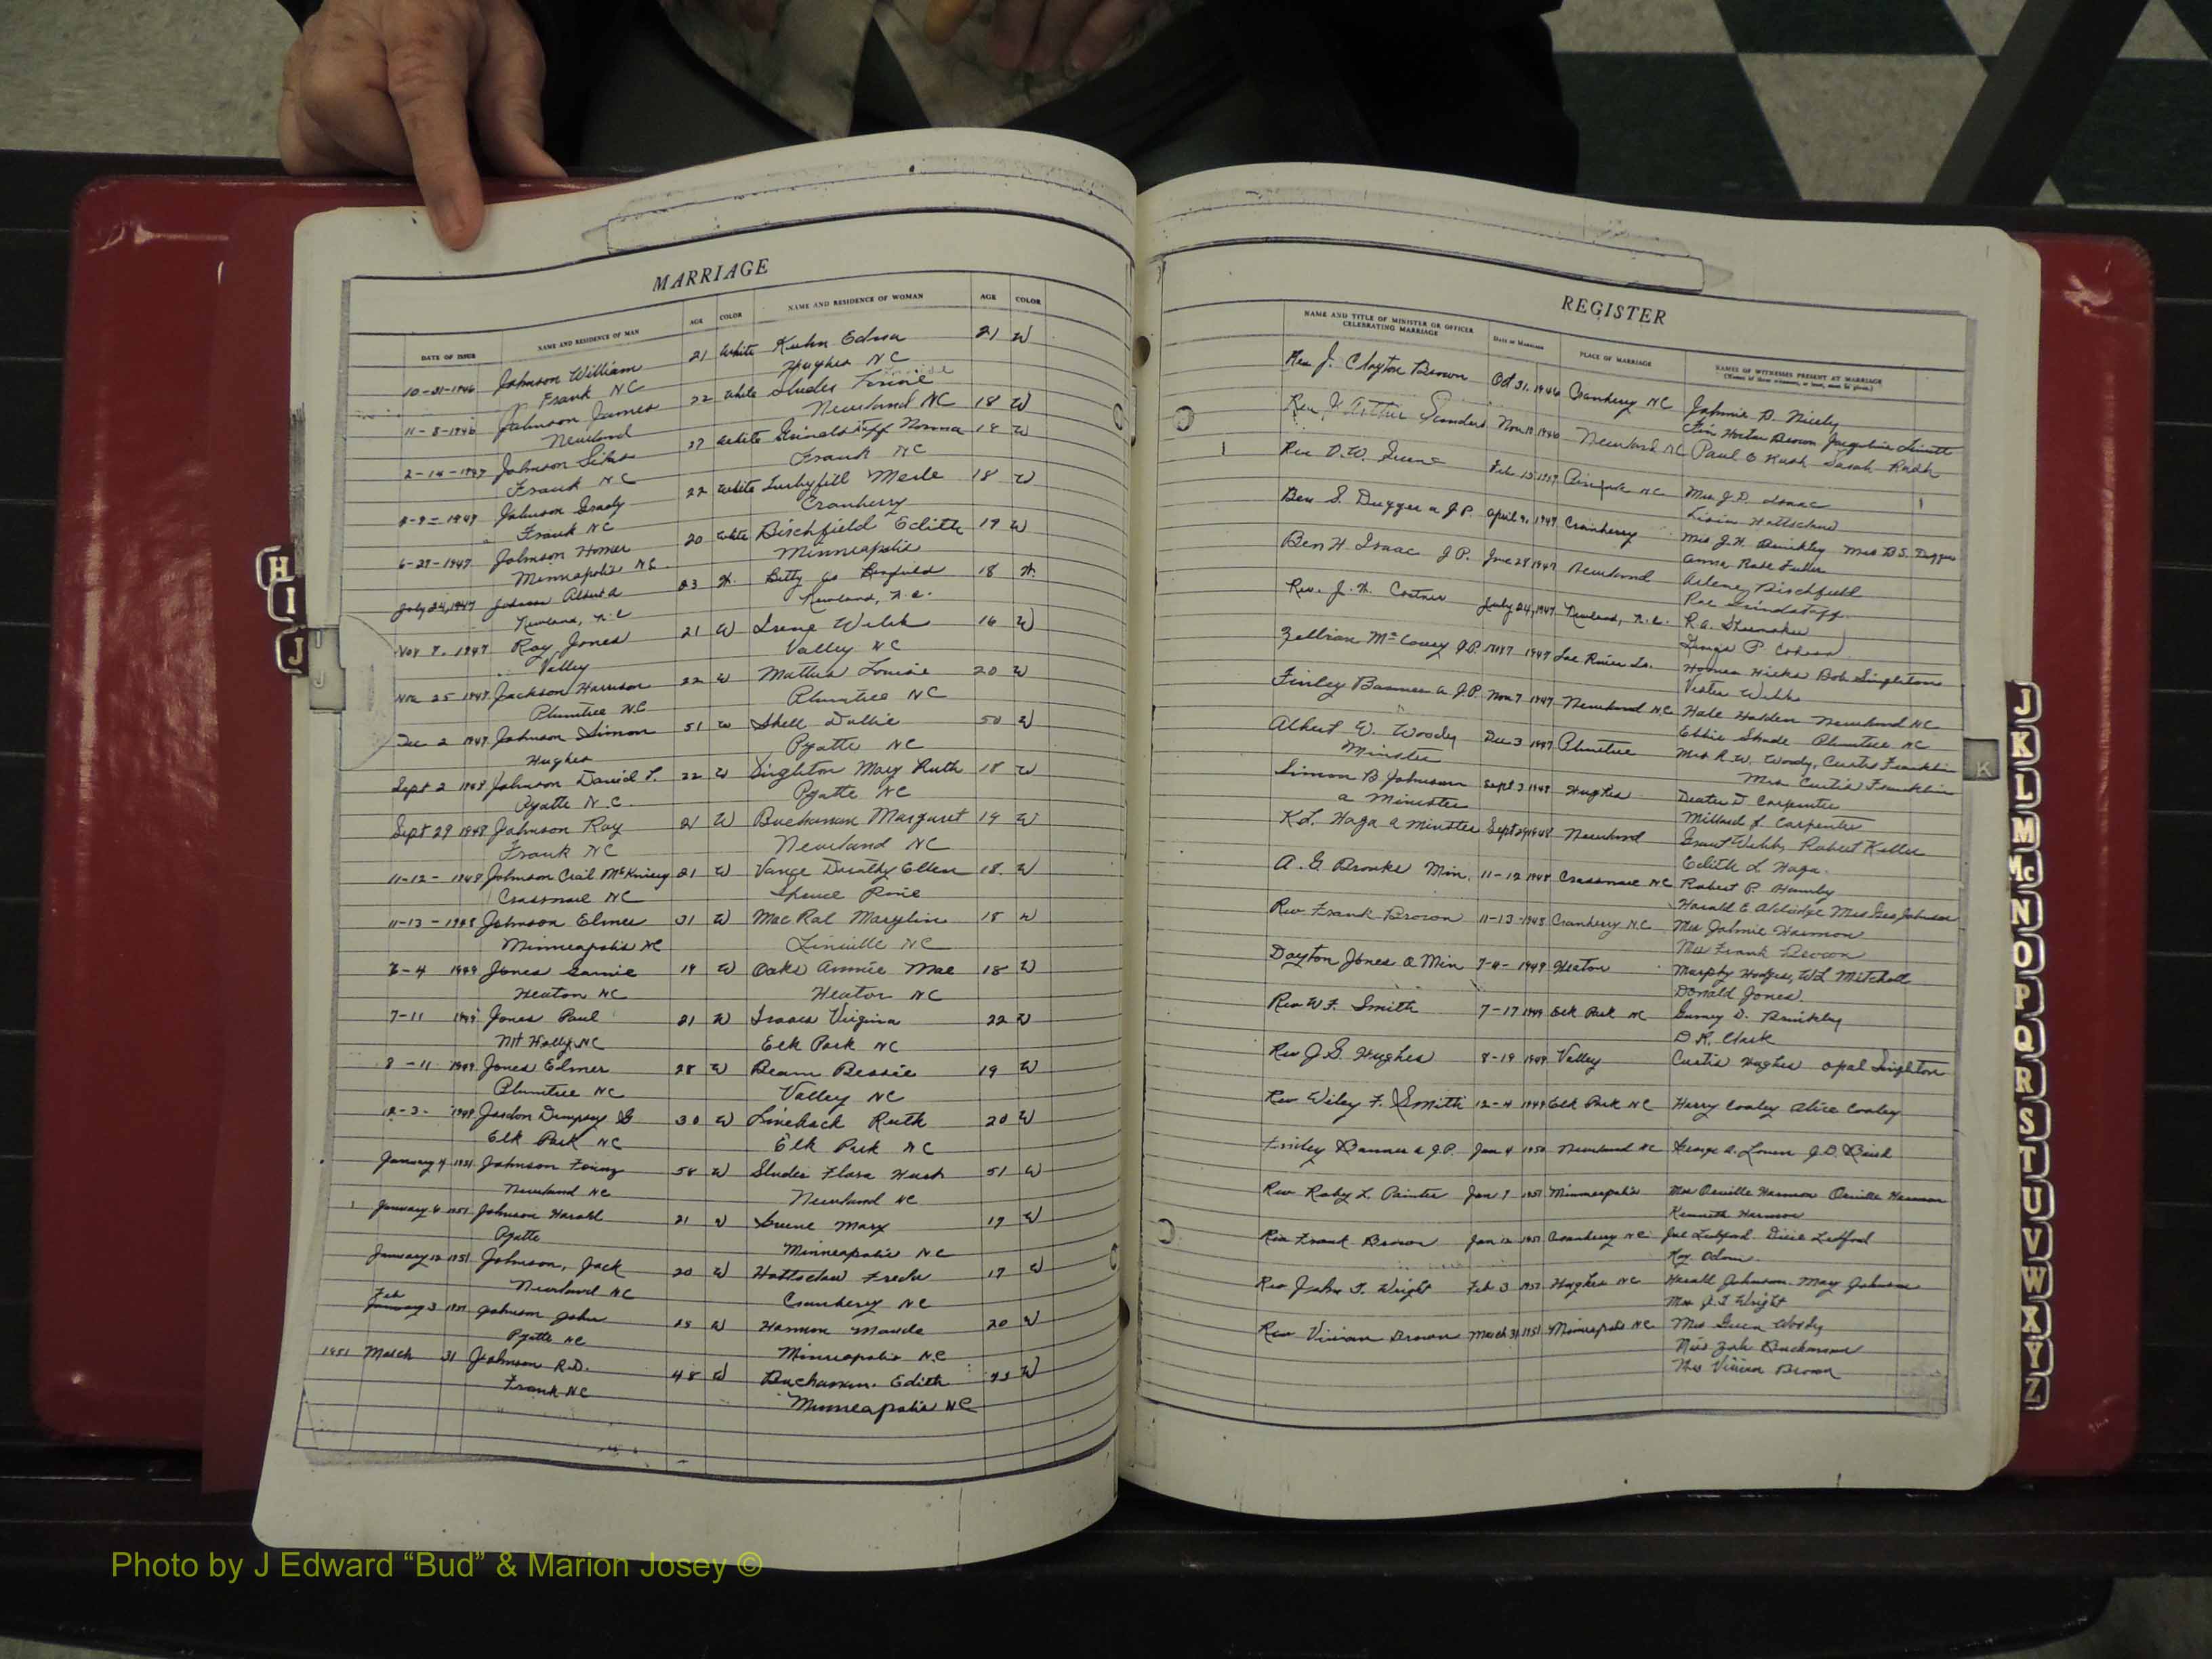 MARRIAGE
DATE OF ISSUE NAME AND RESIDENCE OF MAN AGE COLOR NAME AND RESIDENCE OF WOMAN AGE COLOR
10-31-1946 Johnson William 21 White Kuhn Edna 21 W
Frank NC Hughes NC
11-8-1946 Johnson James 22 White
Newland Newland NC 18 W
2-14-1947 Johnson 27 White Norma 18 W
Frank NC Frank NC
1947 Johnson Grady 22 White Merle 18 W
Frank NC Cranberry
6-27-1947 Johnson Homer 20 White Birchfield Edith 19 W
Minneapolis NC Minneapolis
July 24, 1947 Johnson Albert 23 W. Betty 18 W.
Newland, N.C. Newland, N.C.
Nov 7. 1947 Ray Jones 21 W Irene Webb 16 W
Valley Valley NC
Nov 25 1947 Jackson Harrison 22 W Louise 20 W
Plumtree NC Plumtree NC
Dec 2 1947 Johnson Simon 51 W Shell Dollie 50 W
Hughes Pyatte NC
Sept 2 1948 Johnson David 22 W Singleton Mary Ruth 18 W
Pyatte N.C. Pyatte NC
Sept 29 1948 Johnson Ray 21 W Buchanan Margaret 19 W
Frank NC Newland NC
11-12-1948 Johnson McKinney 21 W Vance Dorothy Ellen 18 W
Crossnore NC Spruce Pine
11-13-1948 Johnson Elmer 31 W Mac Marylin 18 W
Minneapolis NC Linville NC
1949 Jones 19 W Oaks Annie Mae 18 W
Heaton NC Heaton NC
7-11 1949 Jones Paul 21 W Isaacs Virginia 22 W
Mt Holly NC Elk Park NC
8-11 1949 Jones Elmer 28 W Beam Bessie 19 W
Plumtree NC Valley NC
12-3- 1949 Dempsey G 30 W Lineback Ruth 20 W
Elk Park NC Elk Park NC
January 4 Johnson 58 W Flora 51 W
Newland NC Newland NC
January 6 1951 Johnson Harold 21 W Greene Mary 19 W
Pyatte Minneapolis NC
January 12 1951 Johnson, Jack 20 W 17 W
Newland NC Cranberry NC
Feb
January 3 1951 Johnson John 25 W Harmon Maude 20 W
Pyatte NC Minneapolis NC
1951 March 31 Johnson R.D. 48 W Buchanan Edith W
Frank NC Minneapolis NC
REGISTER
NAME AND TITLE OF MINISTER OR OFFICER CELEBRATING MARRIAGE Date of Marriage PLACE OF MARRIAGE NAMES OF WITNESSES PRESENT AT MARRIAGE
Rev J. Clayton Brown Oct 31. 1946 Cranberry NC Johnnie B. Nicely
Brown Jacqueline
Rev J Arthur Sanders Nov 1946 Newland NC Paul O Rash Sarah Rash
1 Rev D.W. Greene Feb 15 1947 NC Mrs J.D. Isaac
Ben S. Dugger a J.P. April 9. 1947 Cranberry Mrs J.H. Brinkley Mrs B.S. Dugger
Ben H. Isaac J P. June 28 1947 Newland Arlene Birchfield
Rev. J. H. July 24, 1947 Newland, N.C. R.A. Shumaker
McCoury J.P. Nov 7 1947 Homer Hicks Bob Singleton
Webb
Finley Banner a J.P. Nov 7 1947 Newland NC Holden Newland NC
Plumtree NC
Albert W. Woody Dec 3 1947 Plumtree Mrs R.W. Woody, Curtis Franklin
Minister Mrs Curtis Franklin
Simon B Johnson Sept 3 1948 Hughes Carpenter
a Minister Millard Carpenter
Haga a Minister Sept 29 1948 Newland Grant Webb, Robert Keller
Edith L Haga.
A. G. Brooks Min. 11-12 1948 Crossnore NC Robert P.
Harold E Aldridge Mrs Johnson
Rev Frank Brown 11-13-1948 Cranberry N.C. Mrs Johnnie Harmon
Mrs Frank Brown
Dayton Jones a Min 7-4- 1949 Heaton Murphy Hodges, W.L. Mitchell
Donald Jones.
Rev W.F. Smith 7-17 1949 Elk Park NC Gurney D. Brinkley
D.R. Clark
Rev J.S. Hughes 8-19 1949 Valley Curtis Hughes Opal Singleton
Rev Wiley F. Smith 12-4 1949 Elk Park NC Harry Cooley Alice Cooley
Finley Banner a J.P. Jan 4 1950 Newland NC George A. J.D.
Rev Roby L. Painter Jan 1951 Minneapolis Mrs Orville Harmon Orville Harmon
Kenneth Harmon
Rev Frank Brown Jan 12 1951 Cranberry NC Ledford Dixie Ledford
Roy Odom
Rev John T. Wright Feb 3 1951 Hughes NC Harold Johnson Mary Johnson
Mrs J.T. Wright
Rev Vivian Brown March 31 1951 Minneapolis NC Mrs Woody
Buchanan
Mrs Vivian Brown
H
I
J
J
K
K
L
M
Mc
N
O
P
Q
R
S
T
U
V
W
X
Y
Z
Photo by J Edward “Bud” & Marion Josey ©